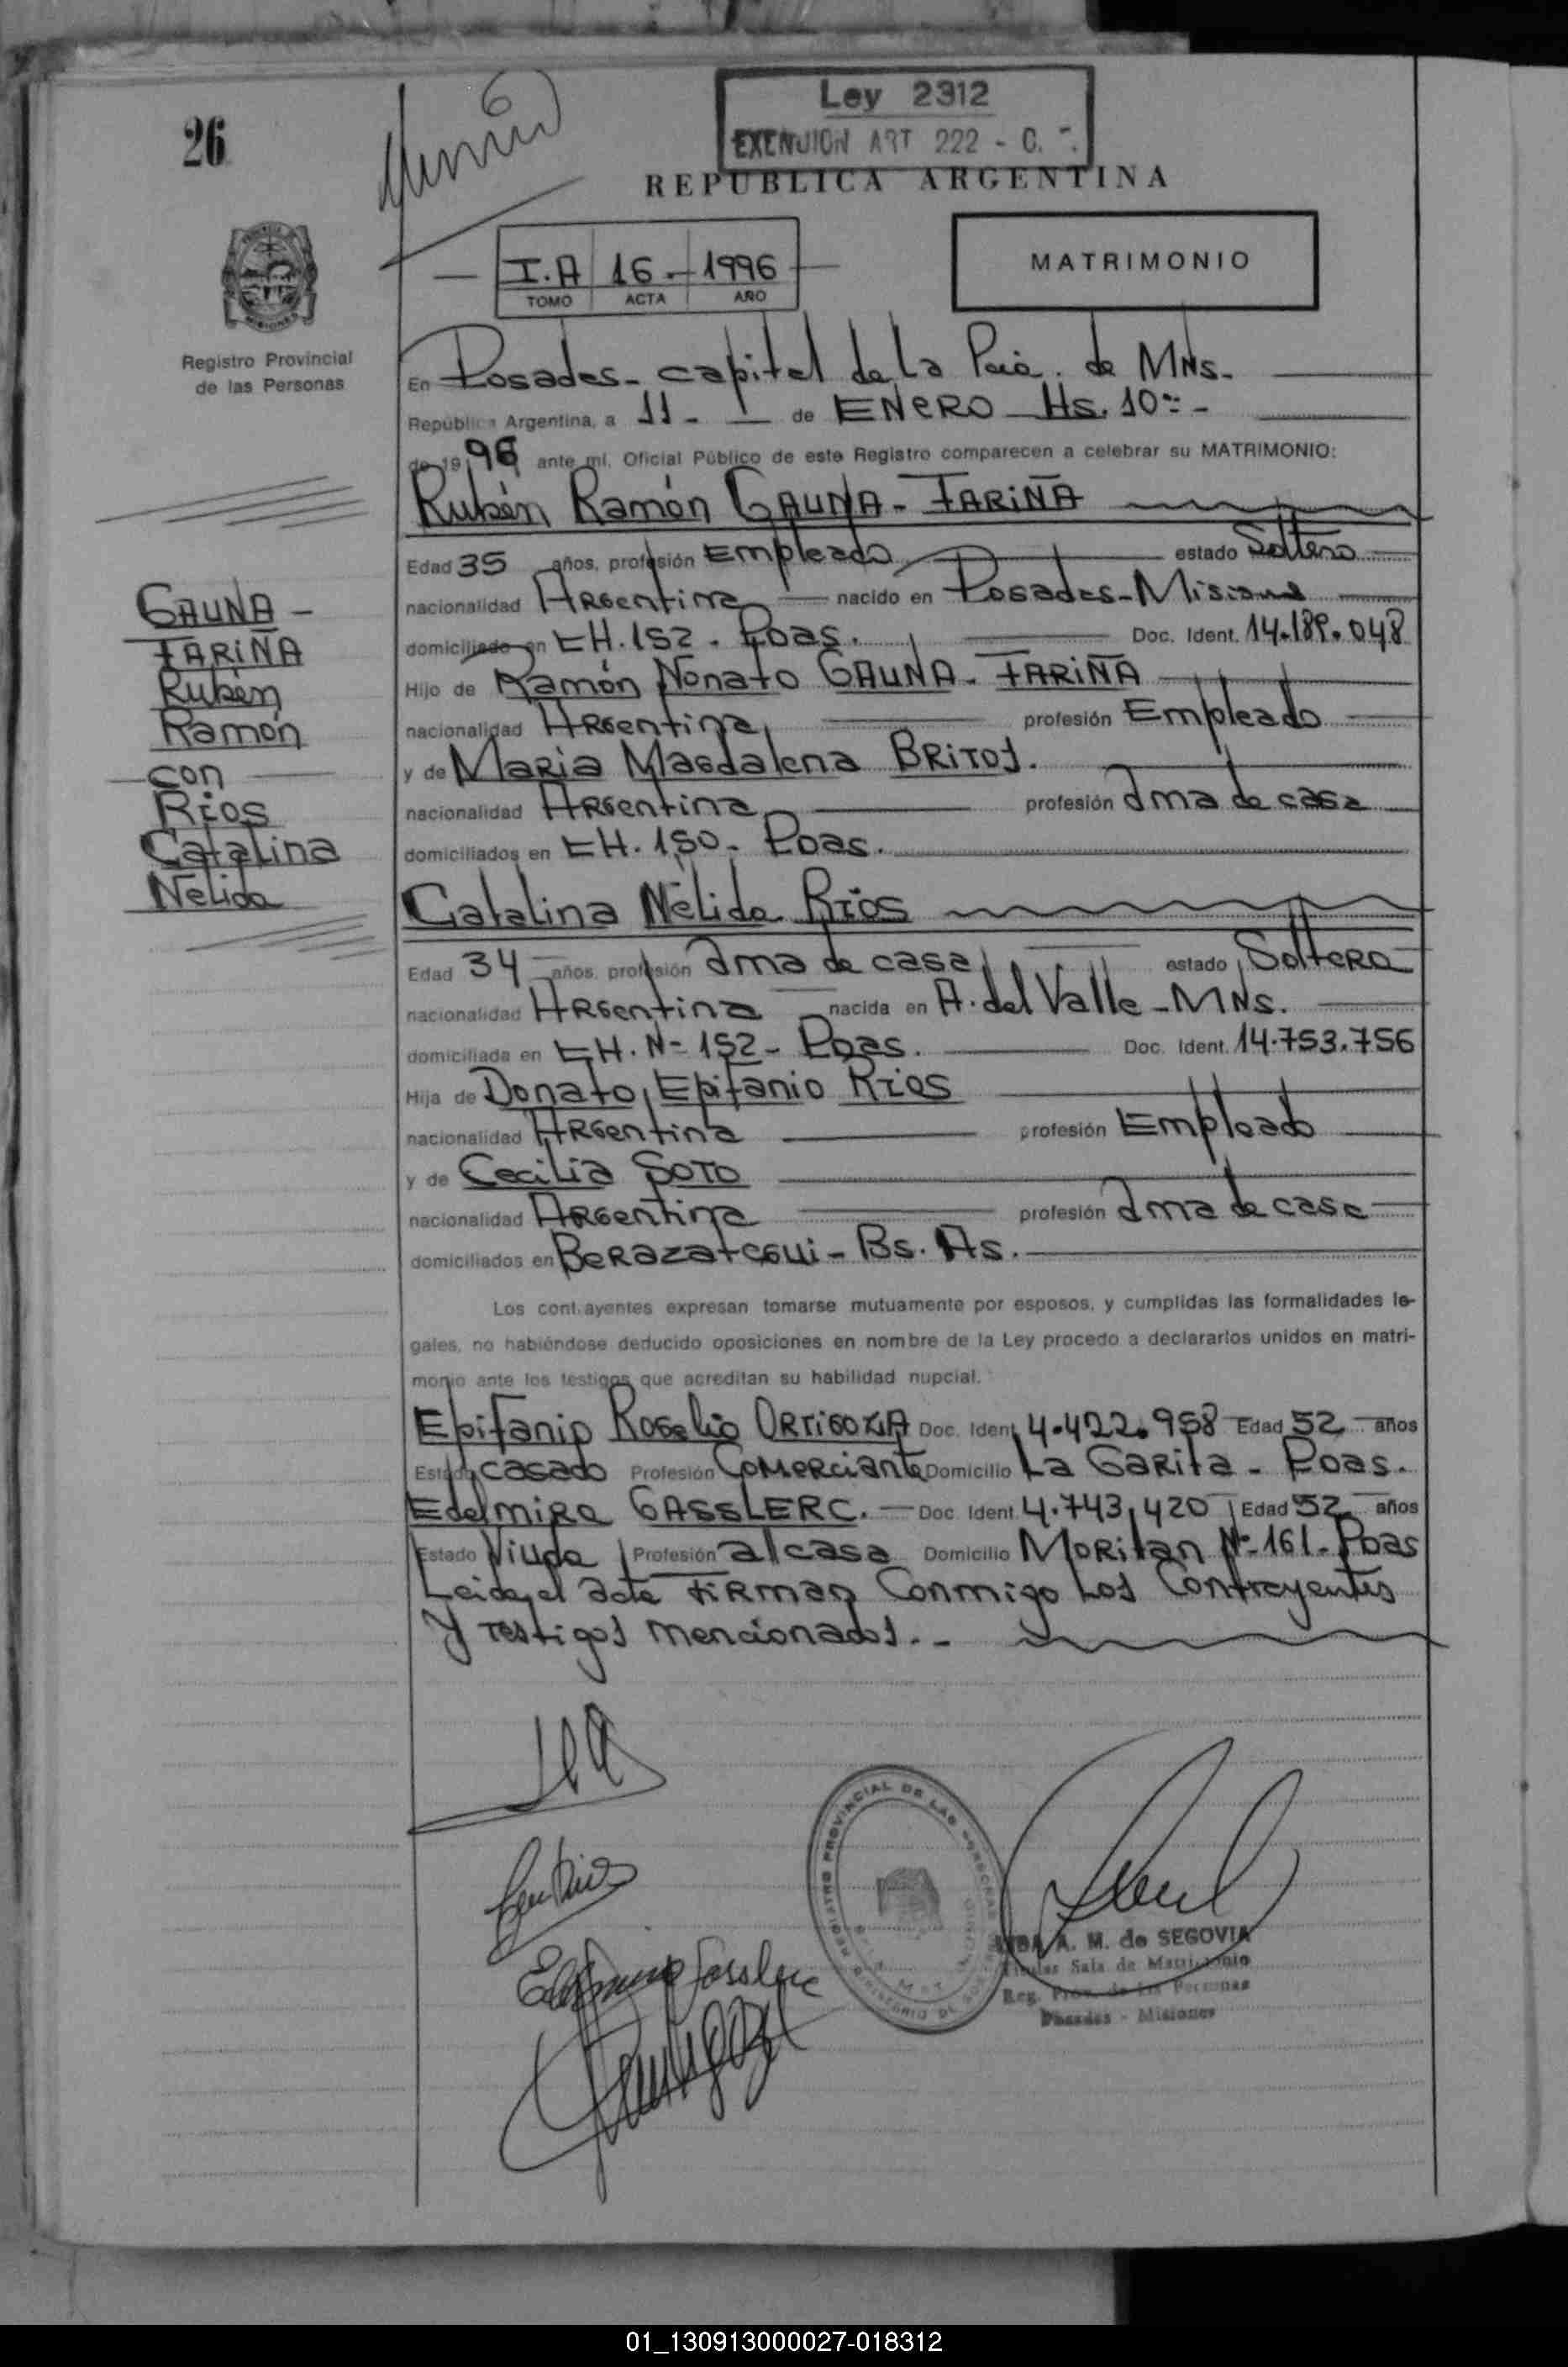 26
Ley 2312
EXENSION ART 222 - C.
REPUBLICA ARGENTINA
I.A 16.- 1996
TOMO ACTA AÑO
MATRIMONIO
MISIONES
Registro Provincial
de las Personas
En Posadas- capital de La Pcia. de MNs.
República Argentina, a 11- de ENERO Hs. 10:-
de 1996 ante mí, Oficial Público de este Registro comparecen a celebrar su MATRIMONIO:
Rubén Ramón GAUNA- FARIÑA
Edad 35 años, profesión Empleado estado Soltero
nacionalidad Argentina nacido en Posadas-Misiones
domiciliado en CH.152. Pdas. Doc. Ident. 14.189.048
Hijo de Ramón Nonato GAUNA- FARIÑA
nacionalidad Argentina profesión Empleado
y de Maria Magdalena BRITOS.
nacionalidad Argentina profesión ama de casa
domiciliados en CH.150- Pdas.
GAUNA-
FARIÑA
Ruben
Ramón
con
Rios
Catalina
Nelida
Catalina Nélida Ríos
Edad 34 años, profesión ama de casa estado Soltera
nacionalidad Argentina nacida en A. del Valle-MNs.
domiciliada en CH. Nº 152- Pdas. Doc. Ident. 14.753.756
Hija de Donato Epifanio Rios
nacionalidad Argentina profesión Empleado
y de Cecilia SOTO
nacionalidad Argentina profesión ama de casa
domiciliados en Berazategui- Bs. As.
Los contrayentes expresan tomarse mutuamente por esposos, y cumplidas las formalidades le-
gales, no habiéndose deducido oposiciones en nombre de la Ley procedo a declararlos unidos en matri-
monio ante los testigos que acreditan su habilidad nupcial.
Epifanio Rogelio ORTIGOZA Doc. Ident. 4.422.958 Edad 52 años
Estado casado Profesión Comerciante Domicilio La Garita- Pdas.
Edelmira GASSLERC. Doc. Ident. 4.743.420 Edad 52 años
Estado Viuda Profesión a/casa Domicilio Moritan Nº 161- Pdas
Leida el acta firman Conmigo Los Contrayentes
y testigos mencionados.-
REGISTRO PROVINCIAL DE LAS PERSONAS
A. M. de SEGOVIA
Titular Sala de Matrimonio
Reg. Prov. de las Personas
Posadas - Misiones
01_130913000027-018312